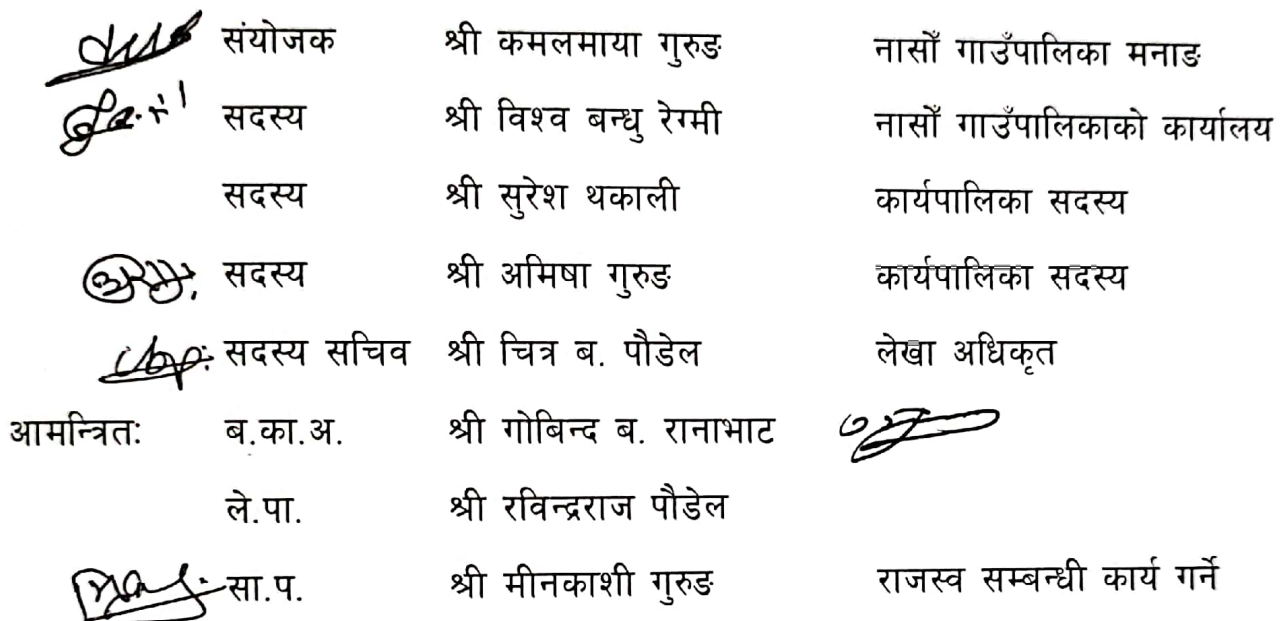 संयोजक श्री कमलमाया गुरुङ नासोँ गाउँपालिका मनाङ
सदस्य श्री विश्व बन्धु रेग्मी नासोँ गाउँपालिकाको कार्यालय
सदस्य श्री सुरेश थकाली कार्यपालिका सदस्य
सदस्य श्री अमिषा गुरुङ कार्यपालिका सदस्य
सदस्य सचिव श्री चित्र ब. पौडेल लेखा अधिकृत
आमन्त्रितः ब.का.अ. श्री गोबिन्द ब. रानाभाट
ले.पा. श्री रविन्द्रराज पौडेल
सा.प. श्री मीनकाशी गुरुङ राजस्व सम्बन्धी कार्य गर्ने